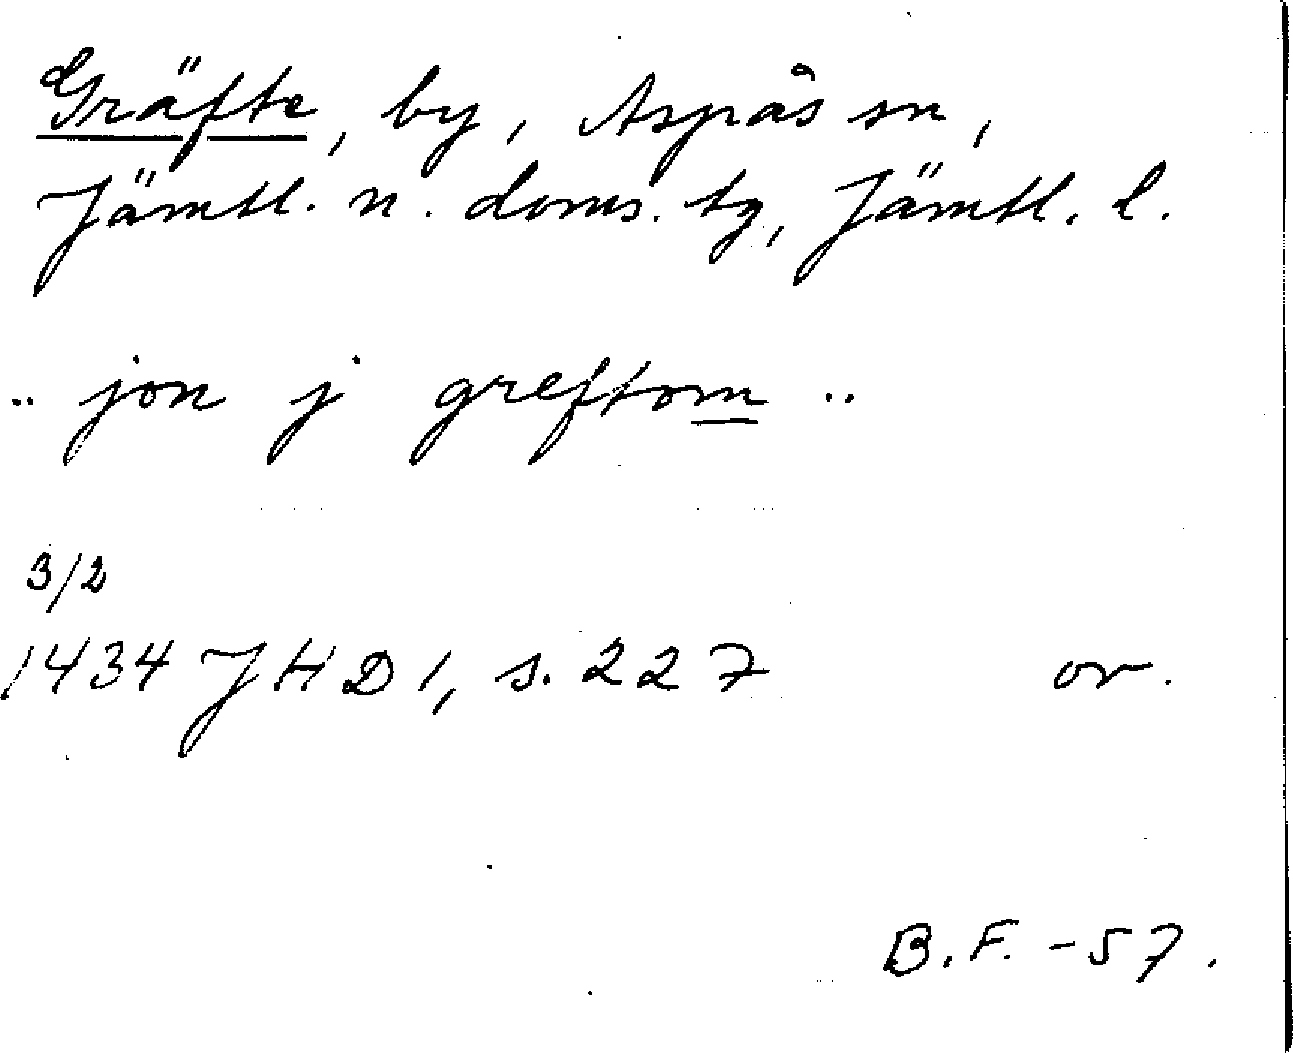 Gräfte, by, Aspås sn,
Jämtl. n. doms. tg, Jämtl. l.
.. jon j greftom ..
3/2
1434 JHD 1, s. 227 or.
B.F. -57.